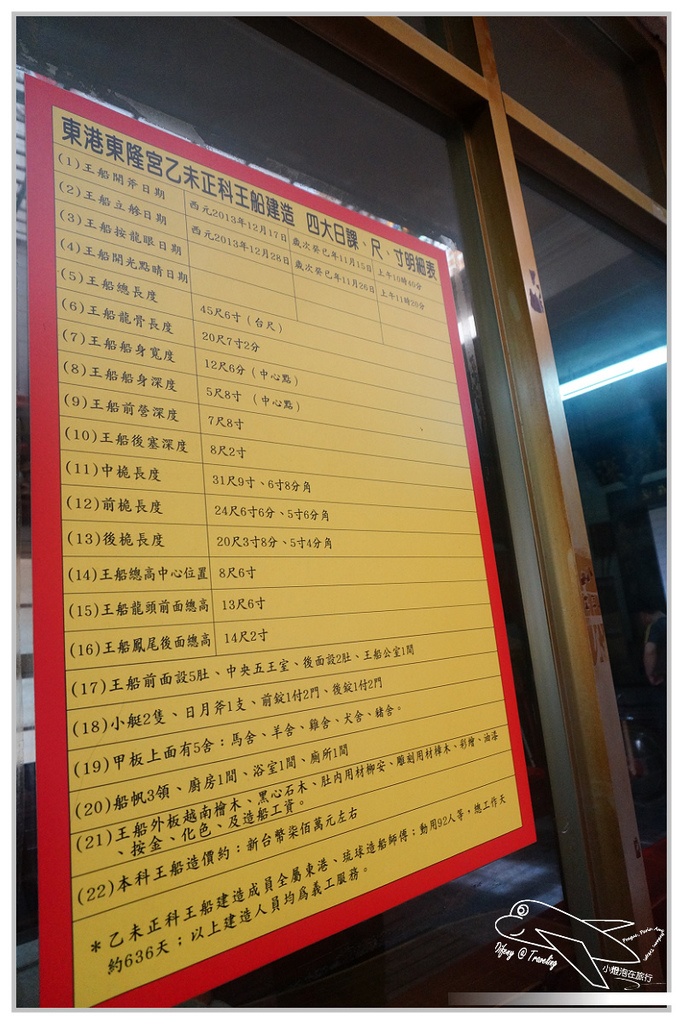 東港東隆宮乙未正科王船建造 四大日課、尺、寸明細表
(1)王船開斧日期 西元2013年12月17日 歲次癸巳年11月15日 上午10時40分
(2)王船立艌日期 西元2013年12月28日 歲次癸巳年11月26日 上午11時20分
(3)王船按龍眼日期
(4)王船開光點睛日期
(5)王船總長度 45尺6寸(台尺)
(6)王船龍骨長度 20尺7寸2分
(7)王船船身寬度 12尺6分(中心點)
(8)王船船身深度 5尺8寸 (中心點)
(9)王船前營深度 7尺8寸
(10)王船後塞深度 8尺2寸
(11)中桅長度 31尺9寸、6寸8分角
(12)前桅長度 24尺6寸6分、5寸6分角
(13)後桅長度 20尺3寸8分、5寸4分角
(14)王船總高中心位置 8尺6寸
(15)王船龍頭前面總高 13尺6寸
(16)王船鳳尾後面總高 14尺2寸
(17)王船前面設5肚、中央五王室、後面設2肚、王船公室1間
(18)小艇2隻、日月斧1支、前錠1付2門、後錠1付2門
(19)甲板上面有5舍:馬舍、羊舍、雞舍、犬舍、豬舍。
(20)船帆3領、廚房1間、浴室1間、廁所1間
(21)王船外板越南檜木、黑心石木、肚內用材柳安、雕刻用材樟木、彩繪、油漆
、按金、化色、及造船工資。
(22)本科王船造價約:新台幣柒佰萬元左右
*乙未正科王船建造成員全屬東港、琉球造船師傅:動用92人等,總工作天
約636天;以上建造人員均為義工服務。
Difeny @ Traveling
小燈泡在旅行